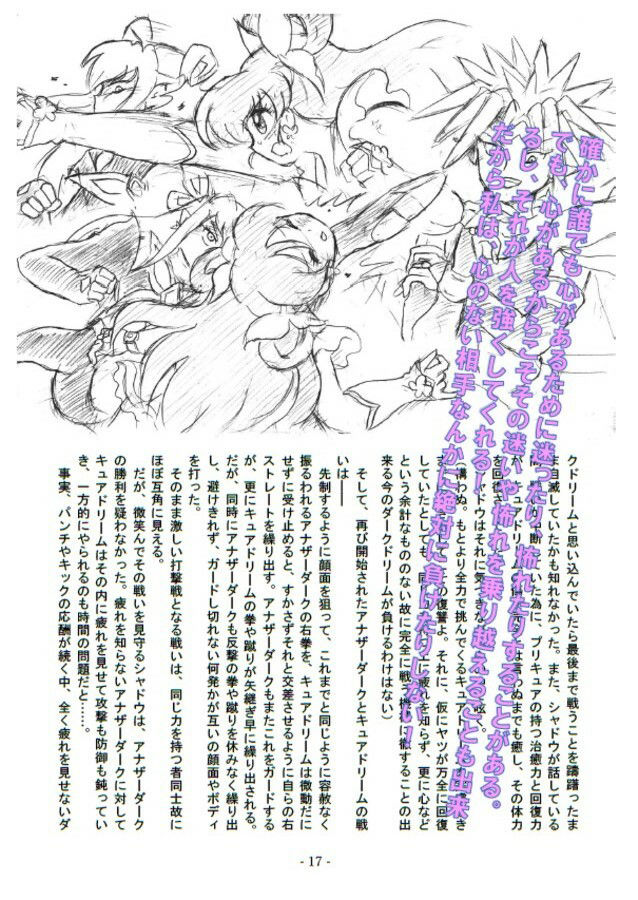 確かに誰でも心があるために迷ったり、怖れたりすることがある。
でも、心があるからこそその迷いや怖れを乗り越えることも出来
るし、それが人を強くしてくれると
だから私は、心のない相手なんかに絶対に負けたりしない！
クドリームと思い込んでいたら最後まで戦うことを躊躇ったま
ま自滅していたかも知れなかった。また、シャドウが話している
いた為に、プリキュアの持つ治癒力と回復力
言わぬまでも癒し、その体力
を回復
シャドウはそれに気
構わぬ。もとより全力で挑んでくるキュアド
の復讐よ。それに、仮にヤツが万全に回復
していたとしても、同
に疲れを知らず、更に心など
という余計なもののない故に完全に戦う機
に徹することの出
来る今のダークドリームが負けるわけはない）
そして、再び開始されたアナザーダークとキュアドリームの戦
いは――
先制するように顔面を狙って、これまでと同じように容赦なく
振るわれるアナザーダークの右拳を、キュアドリームは微動だに
せずに受け止めると、すかさずそれと交差させるように自らの右
ストレートを繰り出す。アナザーダークもまたこれをガードする
が、更にキュアドリームの拳や蹴りが矢継ぎ早に繰り出される。
だが、同時にアナザーダークも反撃の拳や蹴りを休みなく繰り出
し、避けきれず、ガードし切れない何発かが互いの顔面やボディ
を打った。
そのまま激しい打撃戦となる戦いは、同じ力を持つ者同士故に
ほぼ互角に見える。
だが、微笑んでその戦いを見守るシャドウは、アナザーダーク
の勝利を疑わなかった。疲れを知らないアナザーダークに対して
キュアドリームはその内に疲れを見せて攻撃も防御も鈍ってい
き、一方的にやられるのも時間の問題だと……。
事実、パンチやキックの応酬が続く中、全く疲れを見せないダ
- 17 -